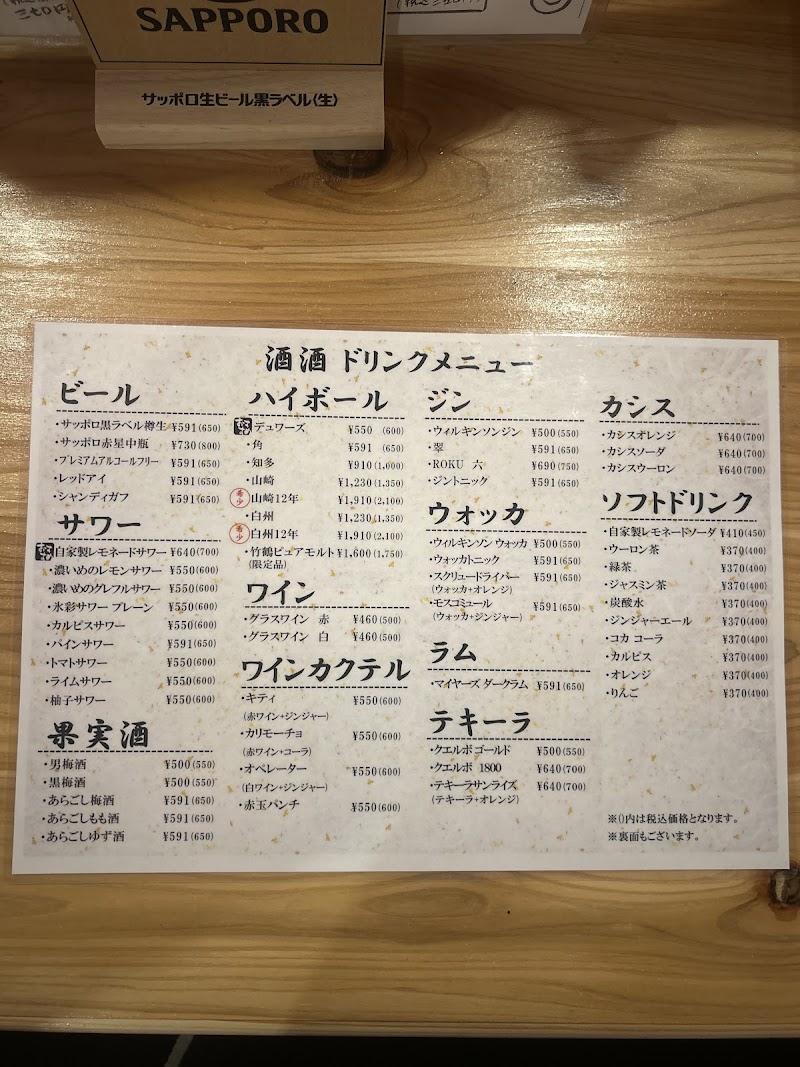 SAPPORO
サッポロ生ビール黒ラベル(生)
酒酒 ドリンクメニュー
ビール
・サッポロ黒ラベル樽生 ¥591(650)
・サッポロ赤星中瓶 ¥730(800)
・プレミアムアルコールフリー ¥591(650)
・レッドアイ ¥591(650)
・シャンディガフ ¥591(650)
サワー
自家製レモネードサワー ¥640(700)
・濃いめのレモンサワー ¥550(600)
・濃いめのグレフルサワー ¥550(600)
・氷彩サワー プレーン ¥550(600)
・カルピスサワー ¥550(600)
・パインサワー ¥591(650)
・トマトサワー ¥550(600)
・ライムサワー ¥550(600)
・柚子サワー ¥550(600)
果実酒
・男梅酒 ¥500(550)
・黒梅酒 ¥500(550)
・あらごし梅酒 ¥591(650)
・あらごしもも酒 ¥591(650)
・あらごしゆず酒 ¥591(650)
ハイボール
デュワーズ ¥550 (600)
・角 ¥591 (650)
・知多 ¥910(1,000)
・山崎 ¥1,230(1,350)
希少 山崎12年 ¥1,910(2,100)
・白州 ¥1,230(1,350)
希少 白州12年 ¥1,910(2,100)
・竹鶴ピュアモルト ¥1,600(1,750)
(限定品)
ワイン
・グラスワイン 赤 ¥460(500)
・グラスワイン 白 ¥460(500)
ワインカクテル
・キティ ¥550(600)
(赤ワイン+ジンジャー)
・カリモーチョ ¥550(600)
(赤ワイン+コーラ)
・オペレーター ¥550(600)
(白ワイン+ジンジャー)
・赤玉パンチ ¥550(600)
ジン
・ウィルキンソンジン ¥500(550)
・翠 ¥591(650)
・ROKU 六 ¥690(750)
・ジントニック ¥591(650)
ウォッカ
・ウィルキンソン ウォッカ ¥500(550)
・ウォッカトニック ¥591(650)
・スクリュードライバー ¥591(650)
(ウォッカ+オレンジ)
・モスコミュール ¥591(650)
(ウォッカ+ジンジャー)
ラム
・マイヤーズ ダークラム ¥591(650)
テキーラ
・クエルボ ゴールド ¥500(550)
・クエルボ 1800 ¥640(700)
・テキーラサンライズ ¥640(700)
(テキーラ+オレンジ)
カシス
・カシスオレンジ ¥640(700)
・カシスソーダ ¥640(700)
・カシスウーロン ¥640(700)
ソフトドリンク
・自家製レモネードソーダ ¥410(450)
・ウーロン茶 ¥370(400)
・緑茶 ¥370(400)
・ジャスミン茶 ¥370(400)
・炭酸水 ¥370(400)
・ジンジャーエール ¥370(400)
・コカ コーラ ¥370(400)
・カルピス ¥370(400)
・オレンジ ¥370(400)
・りんご ¥370(400)
※()内は税込価格となります。
※裏面もございます。